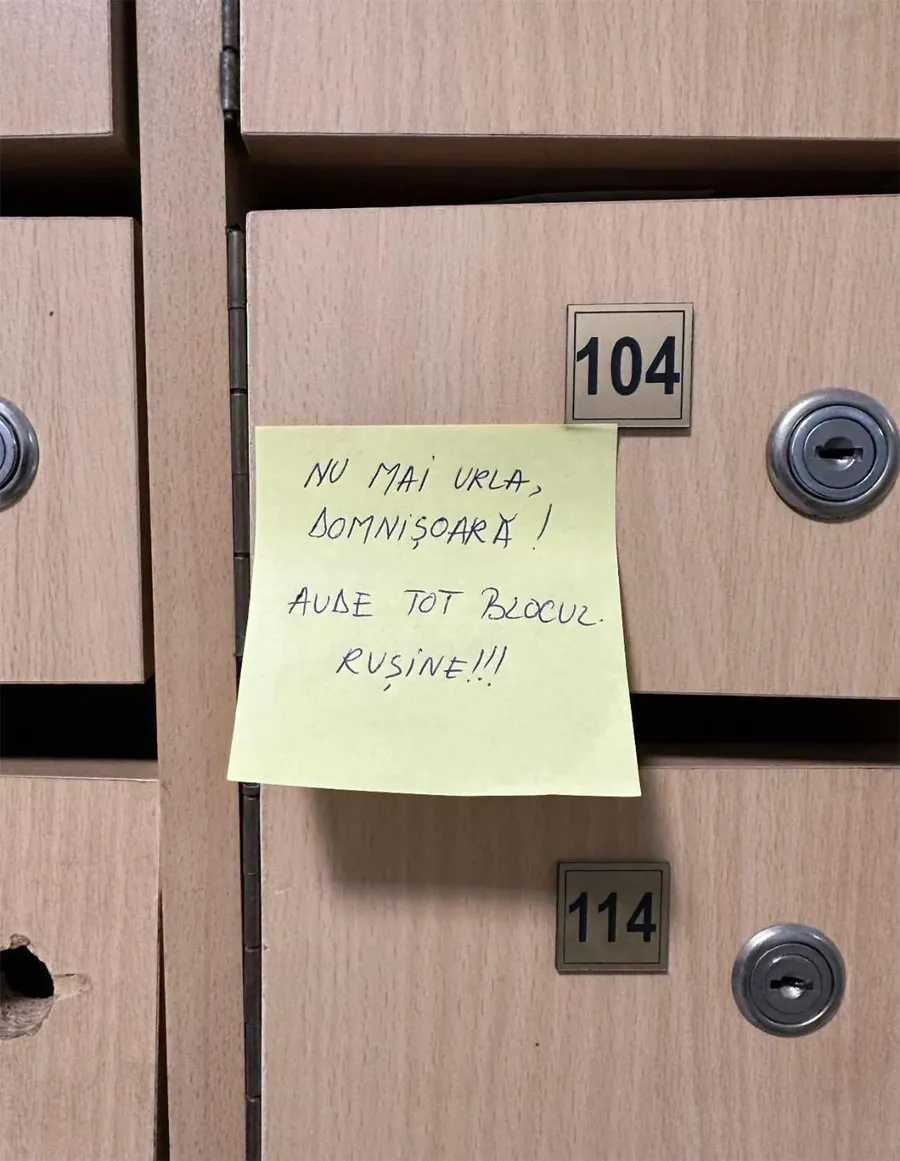 104
NU MAI URLA,
DOMNIȘOARĂ!
AUDE TOT BLOCUL.
RUȘINE!!!
114